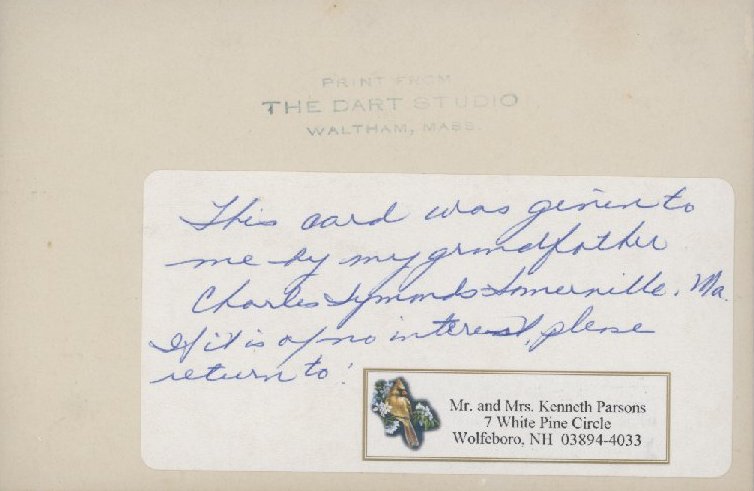 PRINT FROM
THE DART STUDIO
WALTHAM, MASS.
This card was given to
me by my grandfather
Charles Symonds-Somerville, Ma.
If it is of no interest, please
return to:
Mr. and Mrs. Kenneth Parsons
7 White Pine Circle
Wolfeboro, NH 03894-4033